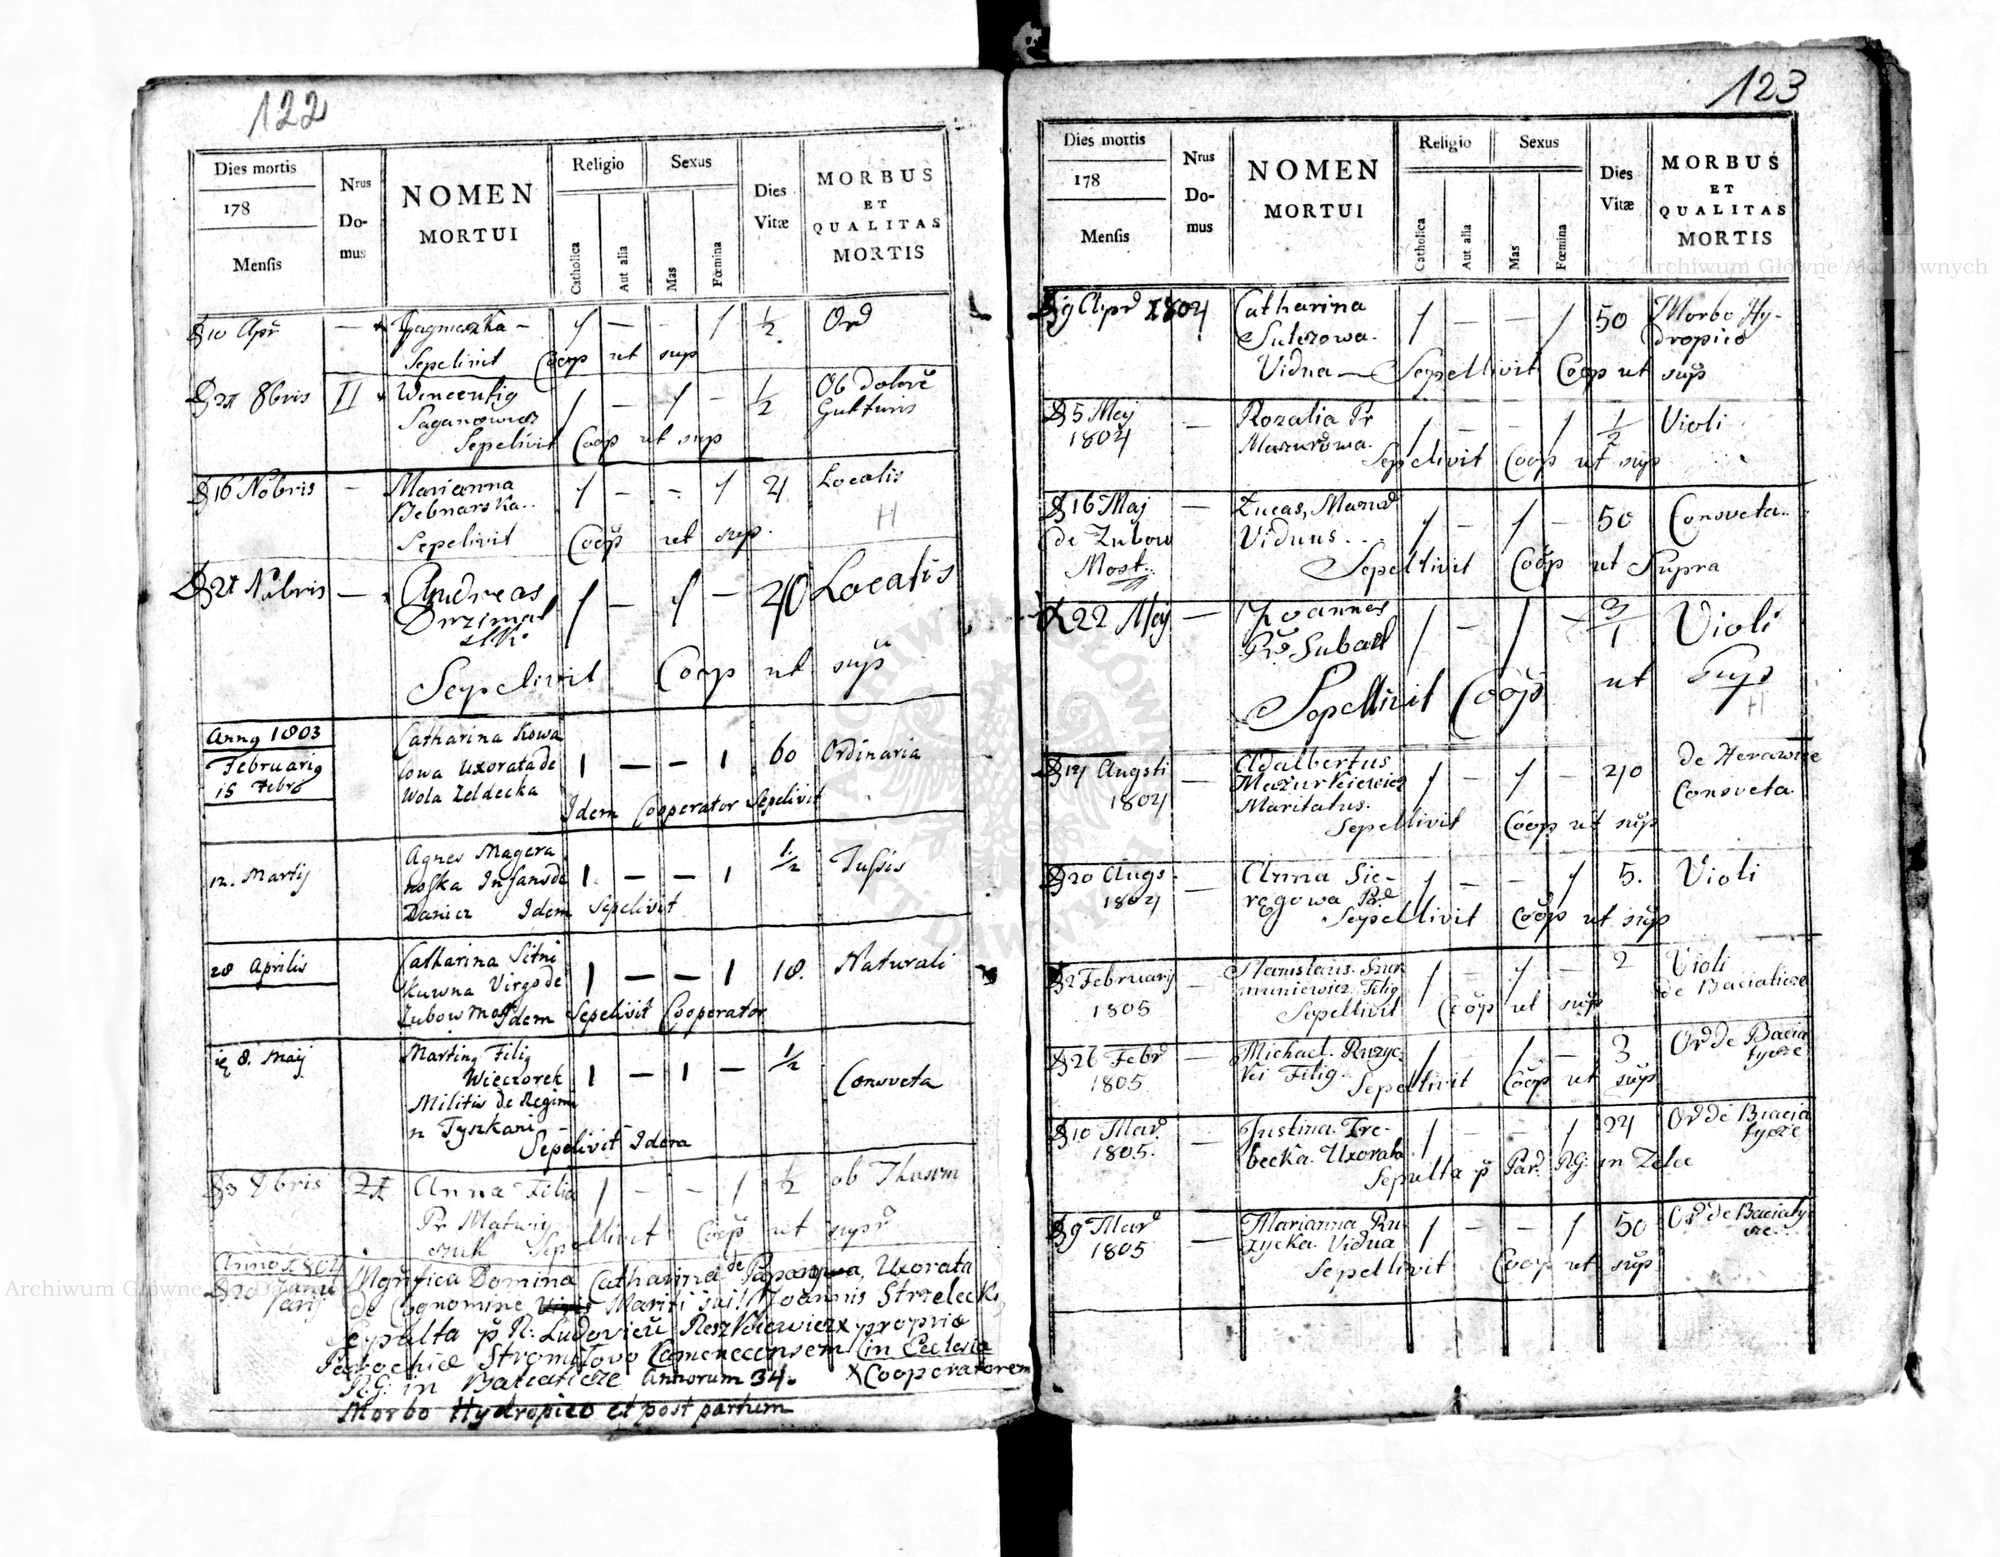 122
Dies mortis
178
Mensis
Nrus
Do-
mus
NOMEN
MORTUI
Religio
Catholica
Aut alia
Sexus
Mas
Fœmina
Dies
Vitæ
MORBUS
ET
QUALITAS
MORTIS
10 Apr — — 1 — — 1 1/2 Ord
Sepelivit Coop ut sup
21 8bris II Wincentig 1 — 1 — 1/2 Ob dolore
Gutturis
Sepelivit Coop ut sup
16 Nobris — Marianna 1 — — 1 4 Localis
Bebnarska
Sepelivit Coop ut sup.
H
21 Nobris — Andreas 1 — 1 — 40 Localis
Sepelivit Coop ut sup
Anno 1803
Februarig
15 Febr
Catharina Kowa
lowa Uxorata de 1 — — 1 60 Ordinaria
Wola Zeldecka
Idem Cooperator Sepelivit
12. Martij
Agnes Magera
noska Infans de 1. — — 1 1/2 Tussis
Daniez Idem Sepelivit
28 Aprilis
Catharina Sitni
kuwna Virgo de 1 — — 1 18. Naturali
Zubow Most Idem Sepelivit Cooperator
8. Maij
Marting Filig
Wieczorek 1 — 1 — 1/2 Consveta
Militis de Regim
n Tyszkani
Sepelivit Idem
3 8bris
Anna Filia 1 — — 1 1/2 ob Thusim
Pr Matwiy
czuk Sepellivit Coop ut supr
Anno 1804
20 Janu
arij
Magnifica Domina Catharina de Uxorata
de Cognomine Mariti sui Joannis Strzelecki,
Sepulta p R: Ludovicu Reszkiewicz x proprio
Parochiæ Stromilowo Cameneconsem in Eclesia
RG: in Baciaticze Annorum 34. x Cooperatorem
Morbo Hydropico et post partum
123
Dies mortis
178
Mensis
Nrus
Do-
mus
NOMEN
MORTUI
Religio
Catholica
Aut alia
Sexus
Mas
Fœmina
Dies
Vitæ
MORBUS
ET
QUALITAS
MORTIS
9 Apr 1804 Catharina 1 — — 1 50 Morbo Hy-
Sulczowa. dropico
Vidua — Sepellivit Coop ut sup
5 Maj — Rozalia Pr 1 — — 1 1/2 Violi
1804 Mazurowa.
Sepelivit Coop ut sup
16 Maj — Lucas, 1 — 1 — 50 Consveta..
de Zubow Viduus..
Most. Sepellivit Coop ut Supra
22 Maj — Joannes 1 — 1 — 3/1 Violi
Sepellivit Coop ut sup
H
Augsti — Adalbertus 1 — 1 — 40
1804 Mazurkiewicz Consveta
Maritatus.
Sepellivit Coop ut sup
20 Augs. — Anna Sie- 1 — — 1 5. Violi
1804 regowa
Sepellivit Coop ut sup
2 February — Stanislaus. Szur 1 — 1 — 2 Violi
1805 muniewicz Filig de Baciaticze
Sepellivit Coop ut sup
26 Febr — Michael. Ruzyc. 1 — 1 — 3 Ord de Bacia
1805 kei Filig. tycze
Sepellivit Coop ut sup
10 Mar. — Justina. Tre- 1 — — 1 24 Ord de Bacia
1805. becka. Uxorata tycze
Sepulta p Par. RG: in Zelec
9 Mar — Marianna Ru- 1 — — 1 50 Ord de Baciaty
1805 zycka. Vidua cze.
Sepellivit Coop ut sup
Archiwum Główne Akt Dawnych